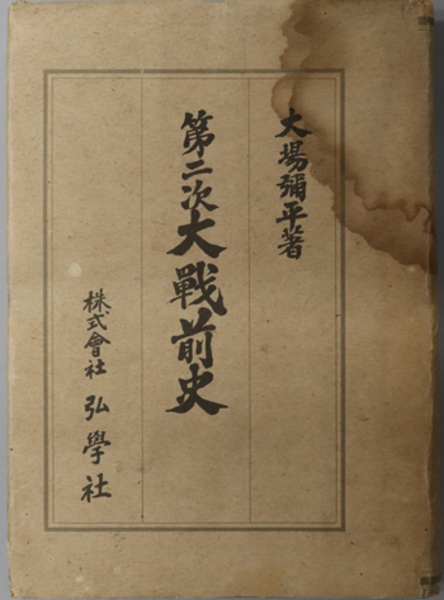 大場彌平著
第二次大戰前史
株式會社 弘學社